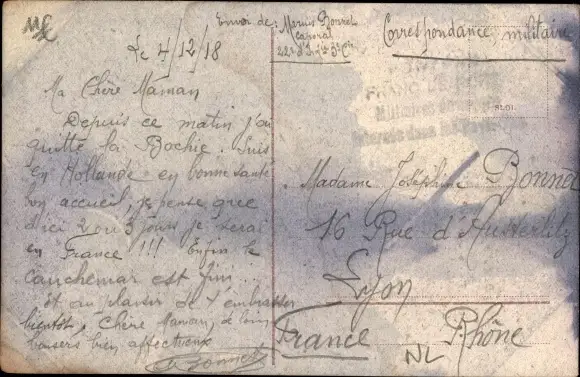 Envoi de : Marius Bonnet
caporal
22e d'Inf.ie 3e Cie
Correspondance militaire
Le 4/12/18
Ma Chère Maman
Depuis ce matin j'ai
quitté la Bochie. Suis
en Hollande en bonne santé
bon accueil, je pense que
d'ici 2 ou 3 jours je serai
en France !!! Enfin le
cauchemar est fini...
et au plaisir de t'embrasser
bientôt, Chère Maman, de bons
baisers bien affectueux
Bonnet
FRANC DE PORT
Militaires
Internés dans les
Madame Joséphine Bonnet
16 Rue d'Austerlitz
Lyon
France Rhône
NL